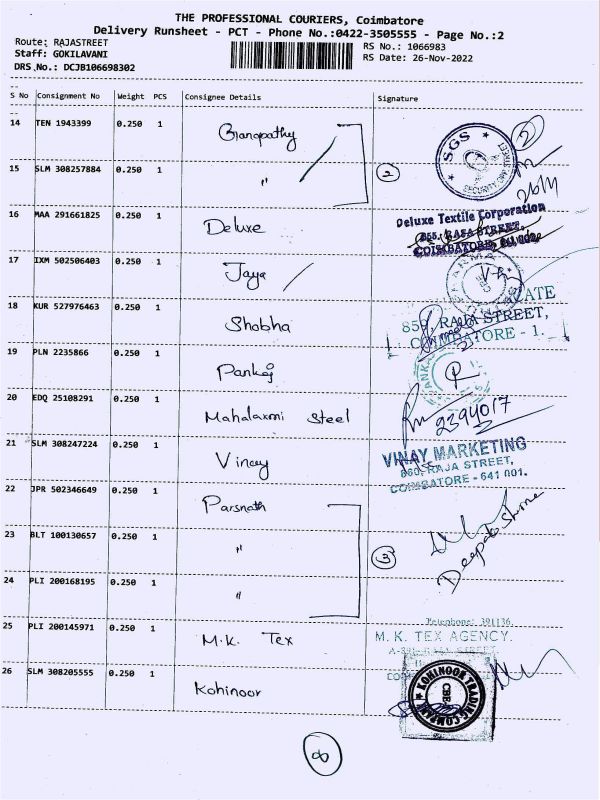 THE PROFESSIONAL COURIERS, Coimbatore
Delivery Runsheet - PCT - Phone No.:0422-3505555 - Page No.:2
Route: RAJASTREET
Staff: GOKILAVANI
DRS No.: DCJB106698302
RS No.: 1066983
RS Date: 26-Nov-2022
S No Consignment No Weight PCS Consignee Details Signature
14 TEN 1943399 0.250 1 Ganapathy
SGS
SECURITY
2
15 SLM 308257884 0.250 1 "
2
16 MAA 291661825 0.250 1 Deluxe
Deluxe Textile Corporation
855, RAJA STREET,
COIMBATORE, 641 001.
17 IXM 502506403 0.250 1 Jaya
18 KUR 527976463 0.250 1 Shobha
859, RAJA STREET,
COIMBATORE - 1.
19 PLN 2235866 0.250 1 Pankaj
20 EDQ 25108291 0.250 1 Mahalaxmi Steel
2394017
21 SLM 308247224 0.250 1 Vinay
VINAY MARKETING
860, RAJA STREET,
COIMBATORE - 641 001.
22 JPR 502346649 0.250 1 Parsnath
23 BLT 100130657 0.250 1 "
3
24 PLI 200168195 0.250 1 "
25 PLI 200145971 0.250 1 M.K. Tex
Telephone: 391136
M. K. TEX AGENCY.
26 SLM 308205555 0.250 1 Kohinoor
KOHINOOR TRADING COMPANY
CBE
8